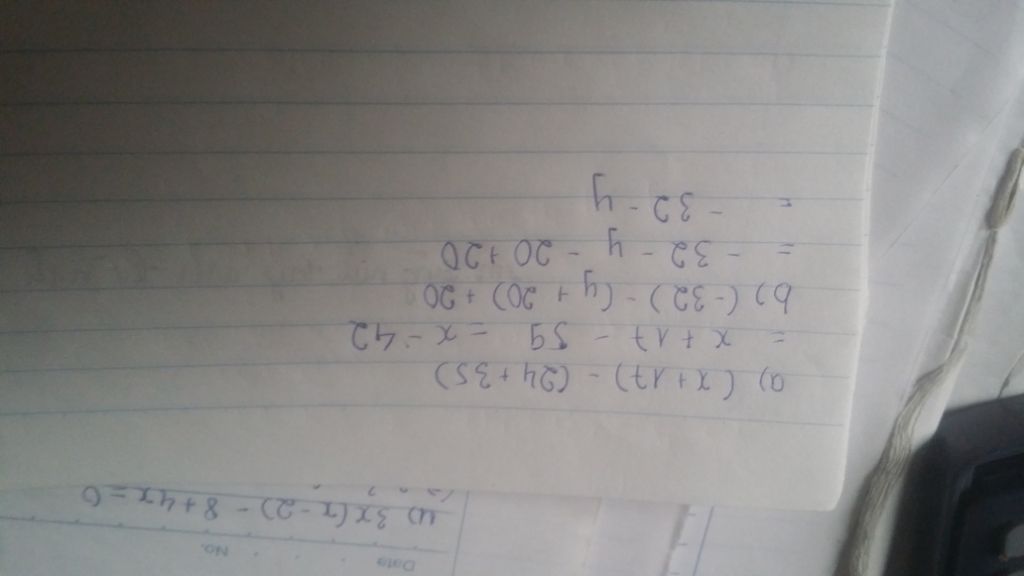 Date No.
u) 3x(x-2) - 8 + 4x = 0
a) (x+17) - (24+35)
= x + 17 - 59 = x - 42
b) (-32) - (y + 20) + 20
= - 32 - y - 20 + 20
= - 32 - y